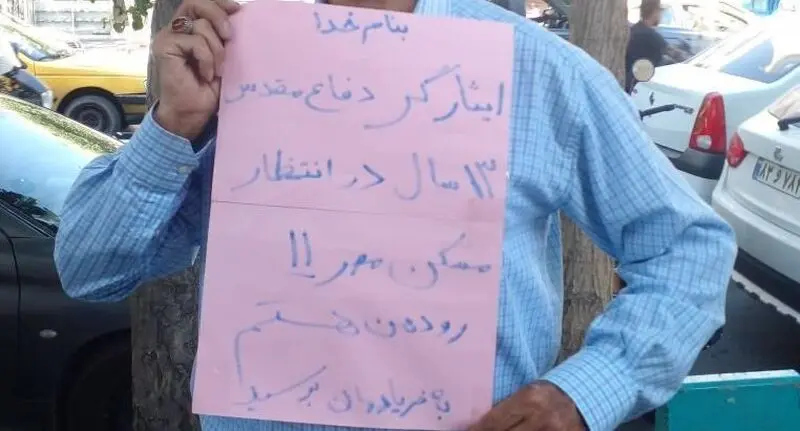 بنام خدا
ایثارگر دفاع مقدس
۱۳ سال در انتظار
مسکن مهر !!
رودهن هستم
به فریادمان برسید